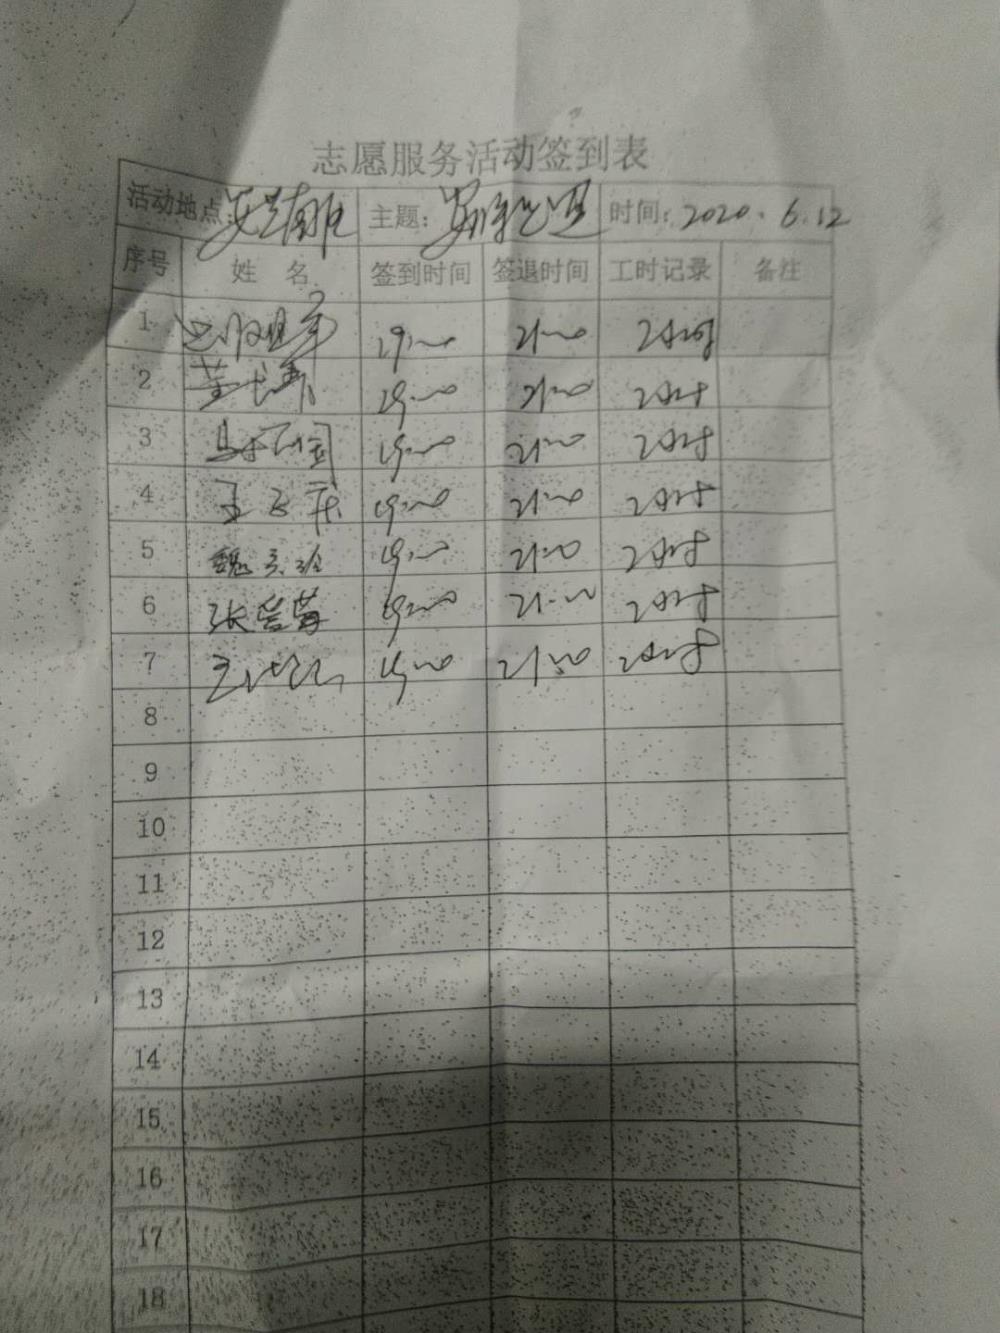 志愿服务活动签到表
活动地点: 主题: 时间: 2020.6.12
序号 姓名 签到时间 签退时间 工时记录 备注
1 19:00 21:00 2小时
2 19:00 21:00 2小时
3 19:00 21:00 2小时
4 王 庆 19:00 21:00 2小时
5 魏 玲 19:00 21:00 2小时
6 张爱萍 19:00 21:00 2小时
7 王 19:00 21:00 2小时
8
9
10
11
12
13
14
15
16
17
18